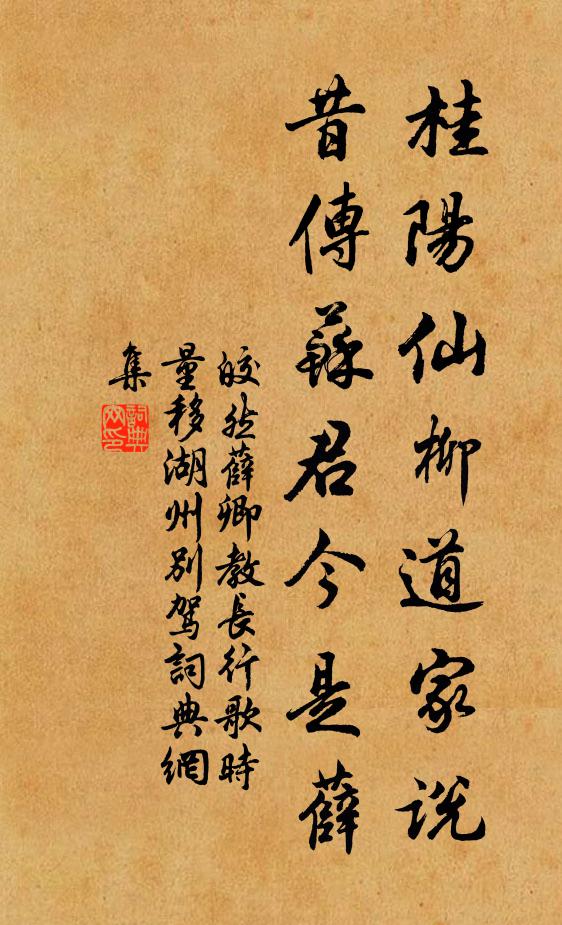 桂陽仙柳道家説
昔傳蘇君今是薛
皎然薛卿教長行歌時
量移湖州別駕詞典網
集
詞典網印